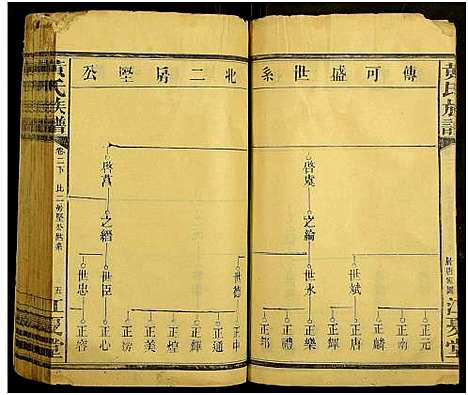 黃氏族譜
江夏堂
傳可盛世系
北二房堅公
啓
之綸
世斌
世永
正元
正南
正麟
正唐
正傳
正樂
正禮
正邦
啓
之縉
世德
世臣
世忠
正中
正通
正輝
正煌
正美
正滂
正心
正容
黃氏族譜
卷二下
北二房堅公世系
五
江夏堂